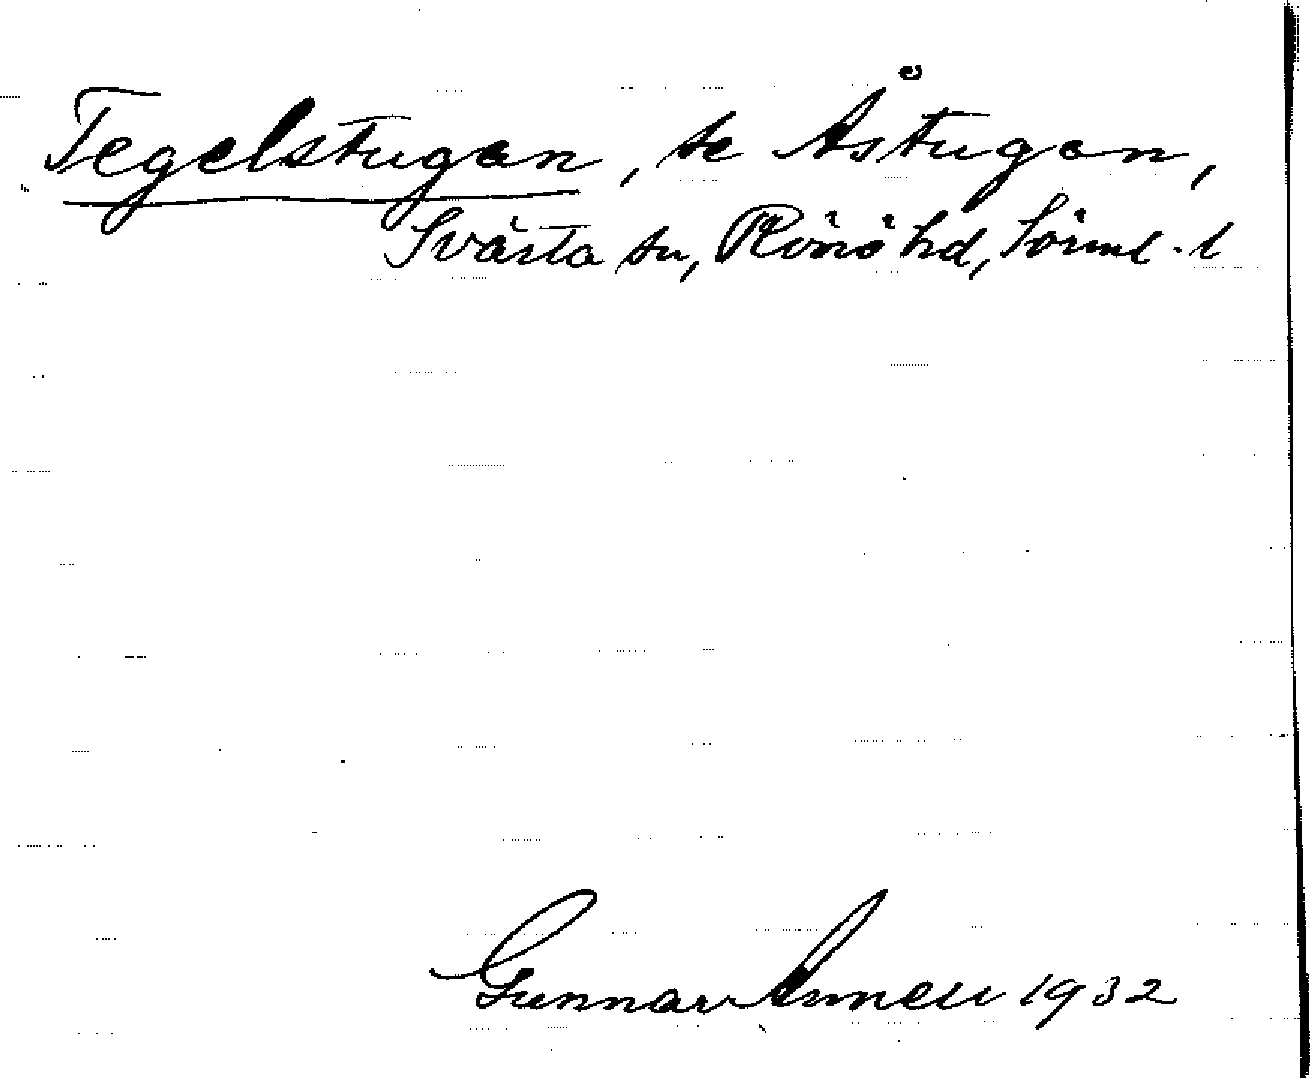 Tegelstugan, se Åstugan,
Svärta sn, Rönö hd, Sörml. l
Gunnar Annell 1932